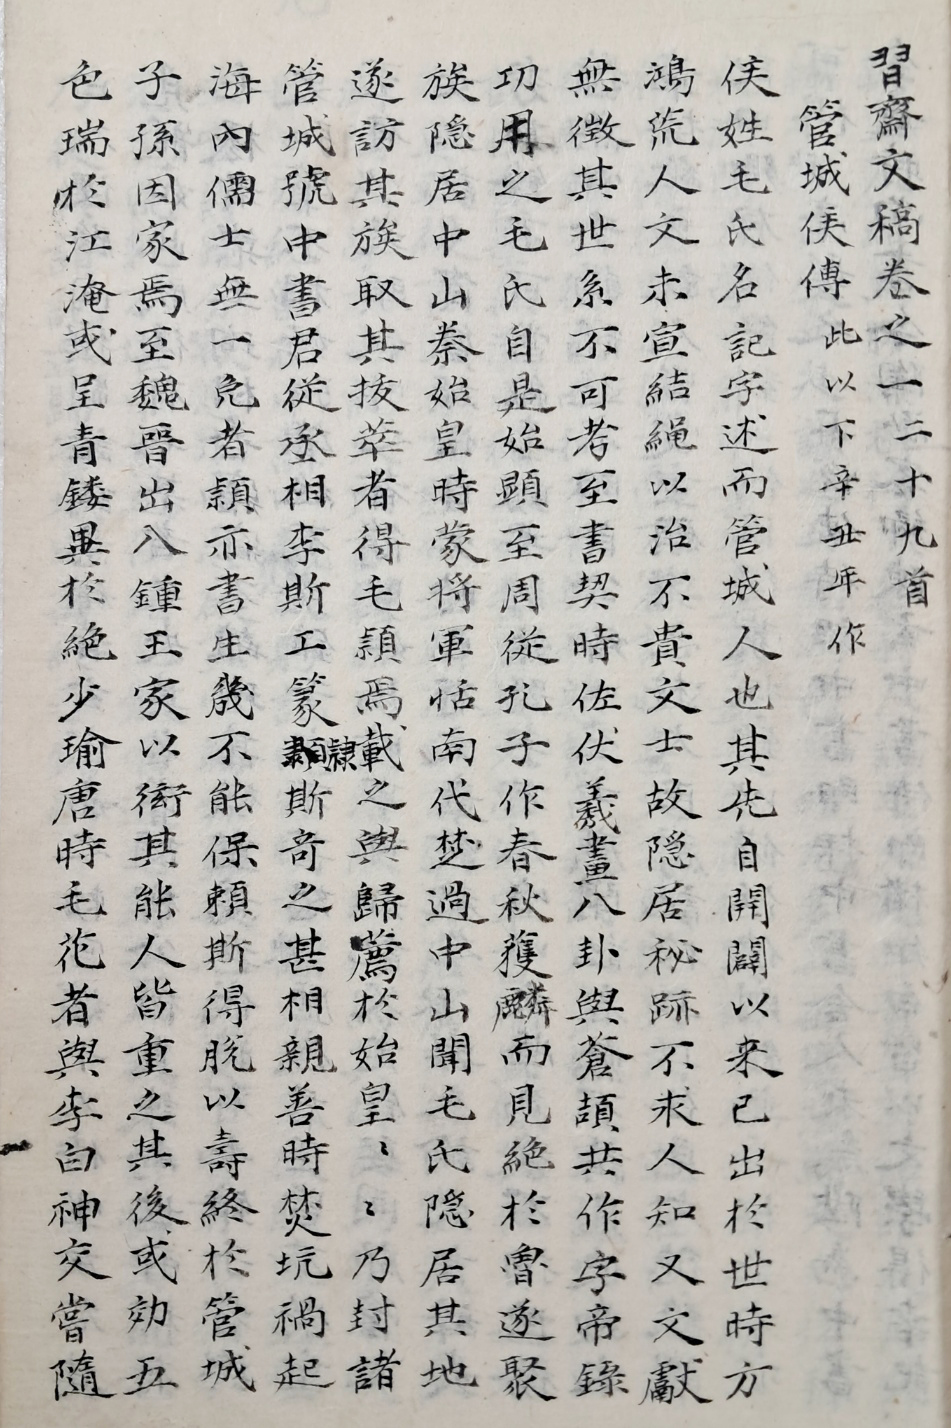 習齋文稿卷之一二十九首
管城侯傳此以下辛丑年作
侯姓毛氏名記字述而管城人也其先自開闢以来已出於世時方
鴻荒人文未宣結繩以治不貴文士故隐居秘跡不求人知又文獻
無徵其世系不可考至書契時佐伏羲畫八卦與蒼頡共作字帝錄
功用之毛氏自是始顕至周従孔子作春秋獲麟而見絕於魯遂聚
族隐居中山秦始皇時蒙將軍恬南代楚過中山聞毛氏隐居其地
遂訪其族取其拔萃者得毛頴焉載之與歸薦於始皇〻〻乃封諸
管城號中書君従丞相李斯工篆隸斯奇之甚相親善時焚坑禍起
海內儒士無一免者頴亦書生幾不能保賴斯得脫以壽終於管城
子孫因家焉至魏晉出入鍾王家以衒其能人皆重之其後或効五
色瑞於江淹或呈青鏤異於絕少瑜唐時毛花者與李白神交嘗隨